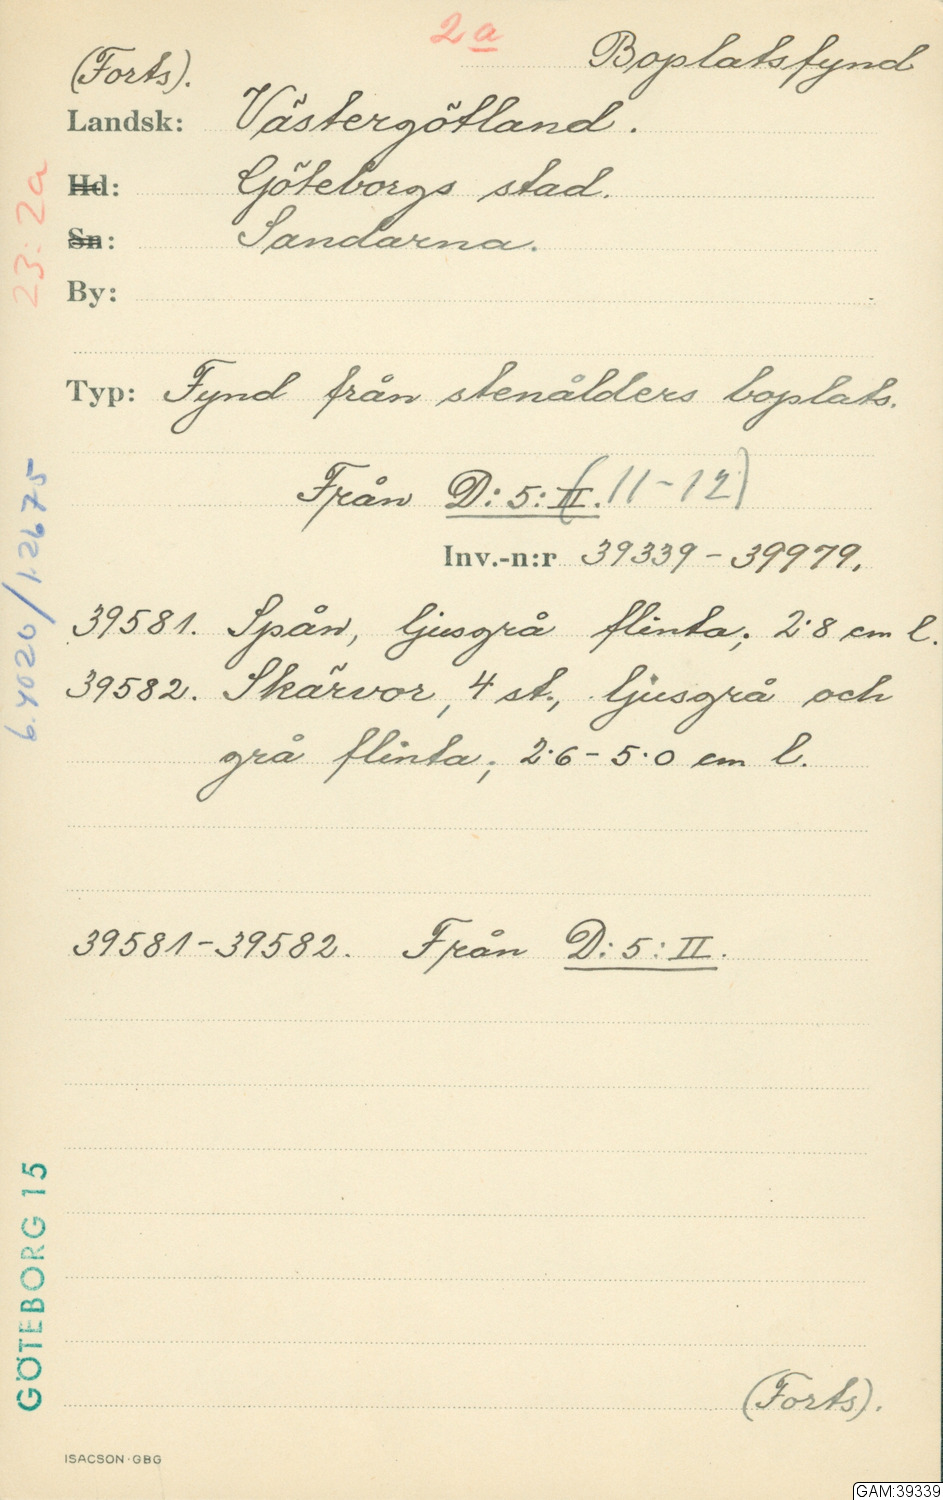 2a
(Forts).
Boplatsfynd
Landsk: Västergötland.
Hd: Göteborgs stad.
Sn: Sandarna.
By:
Typ: Fynd från stenålders boplats.
Från D:5:II. (11-12)
Inv.-n:r 39339-39979.
39581. Spån, ljusgrå flinta; 2·8 cm l.
39582. Skärvor, 4 st., ljusgrå och
grå flinta; 2·6-5·0 cm l.
39581-39582. Från D:5:II.
(Forts).
23:2a
6.4020/1.2675
GÖTEBORG 15
ISACSON·GBG
GAM:39339